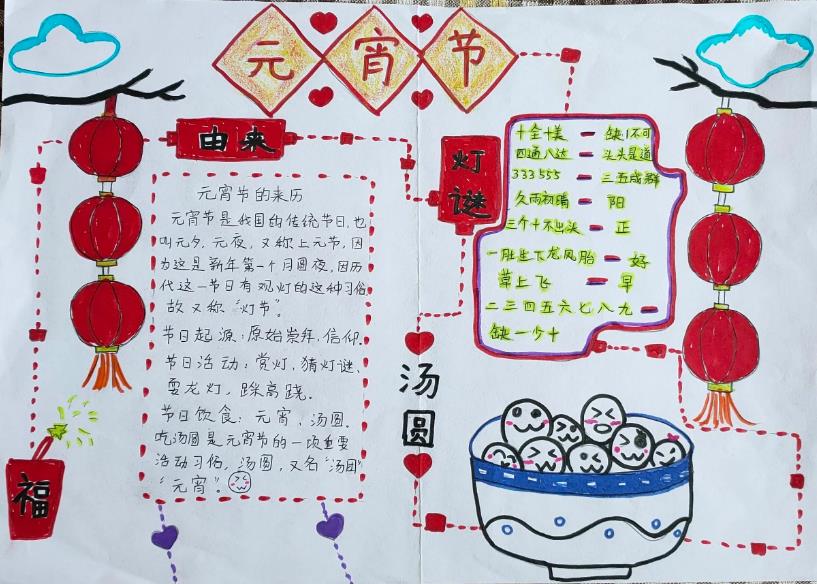 元宵节
由来
元宵节的来历
元宵节是我国的传统节日,也
叫元夕,元夜,又称上元节,因
为这是新年第一个月圆夜,因历
代这一节日有观灯的这种习俗
故又称“灯节”。
节日起源:原始崇拜,信仰.
节日活动:赏灯,猜灯谜、
耍龙灯,踩高跷.
节日饮食:元宵、汤圆.
吃汤圆是元宵节的一项重要
活动习俗,汤圆,又名“汤团”
“元宵”.
福
灯谜
十全十美 — 缺1不可
四通八达 — 头头是道
333 555 — 三五成群
久雨初晴 — 阳
三个十不出头 — 正
一胜生下龙凤胎 — 好
草上飞 — 早
二三四五六七八九 —
缺一少十
汤圆